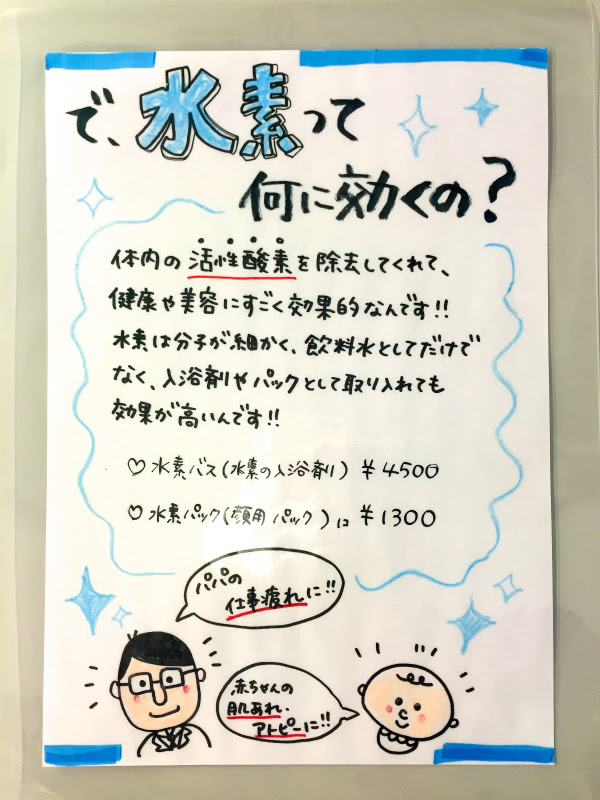 で、水素って
何に効くの?
体内の活性酸素を除去してくれて、
健康や美容にすごく効果的なんです!!
水素は分子が細かく、飲料水としてだけで
なく、入浴剤やパックとして取り入れても
効果が高いんです!!
♡水素バス(水素の入浴剤) ¥4500
♡水素パック(顔用パック)1コ ¥1300
パパの
仕事疲れに!!
赤ちゃんの
肌あれ・
アトピーに!!